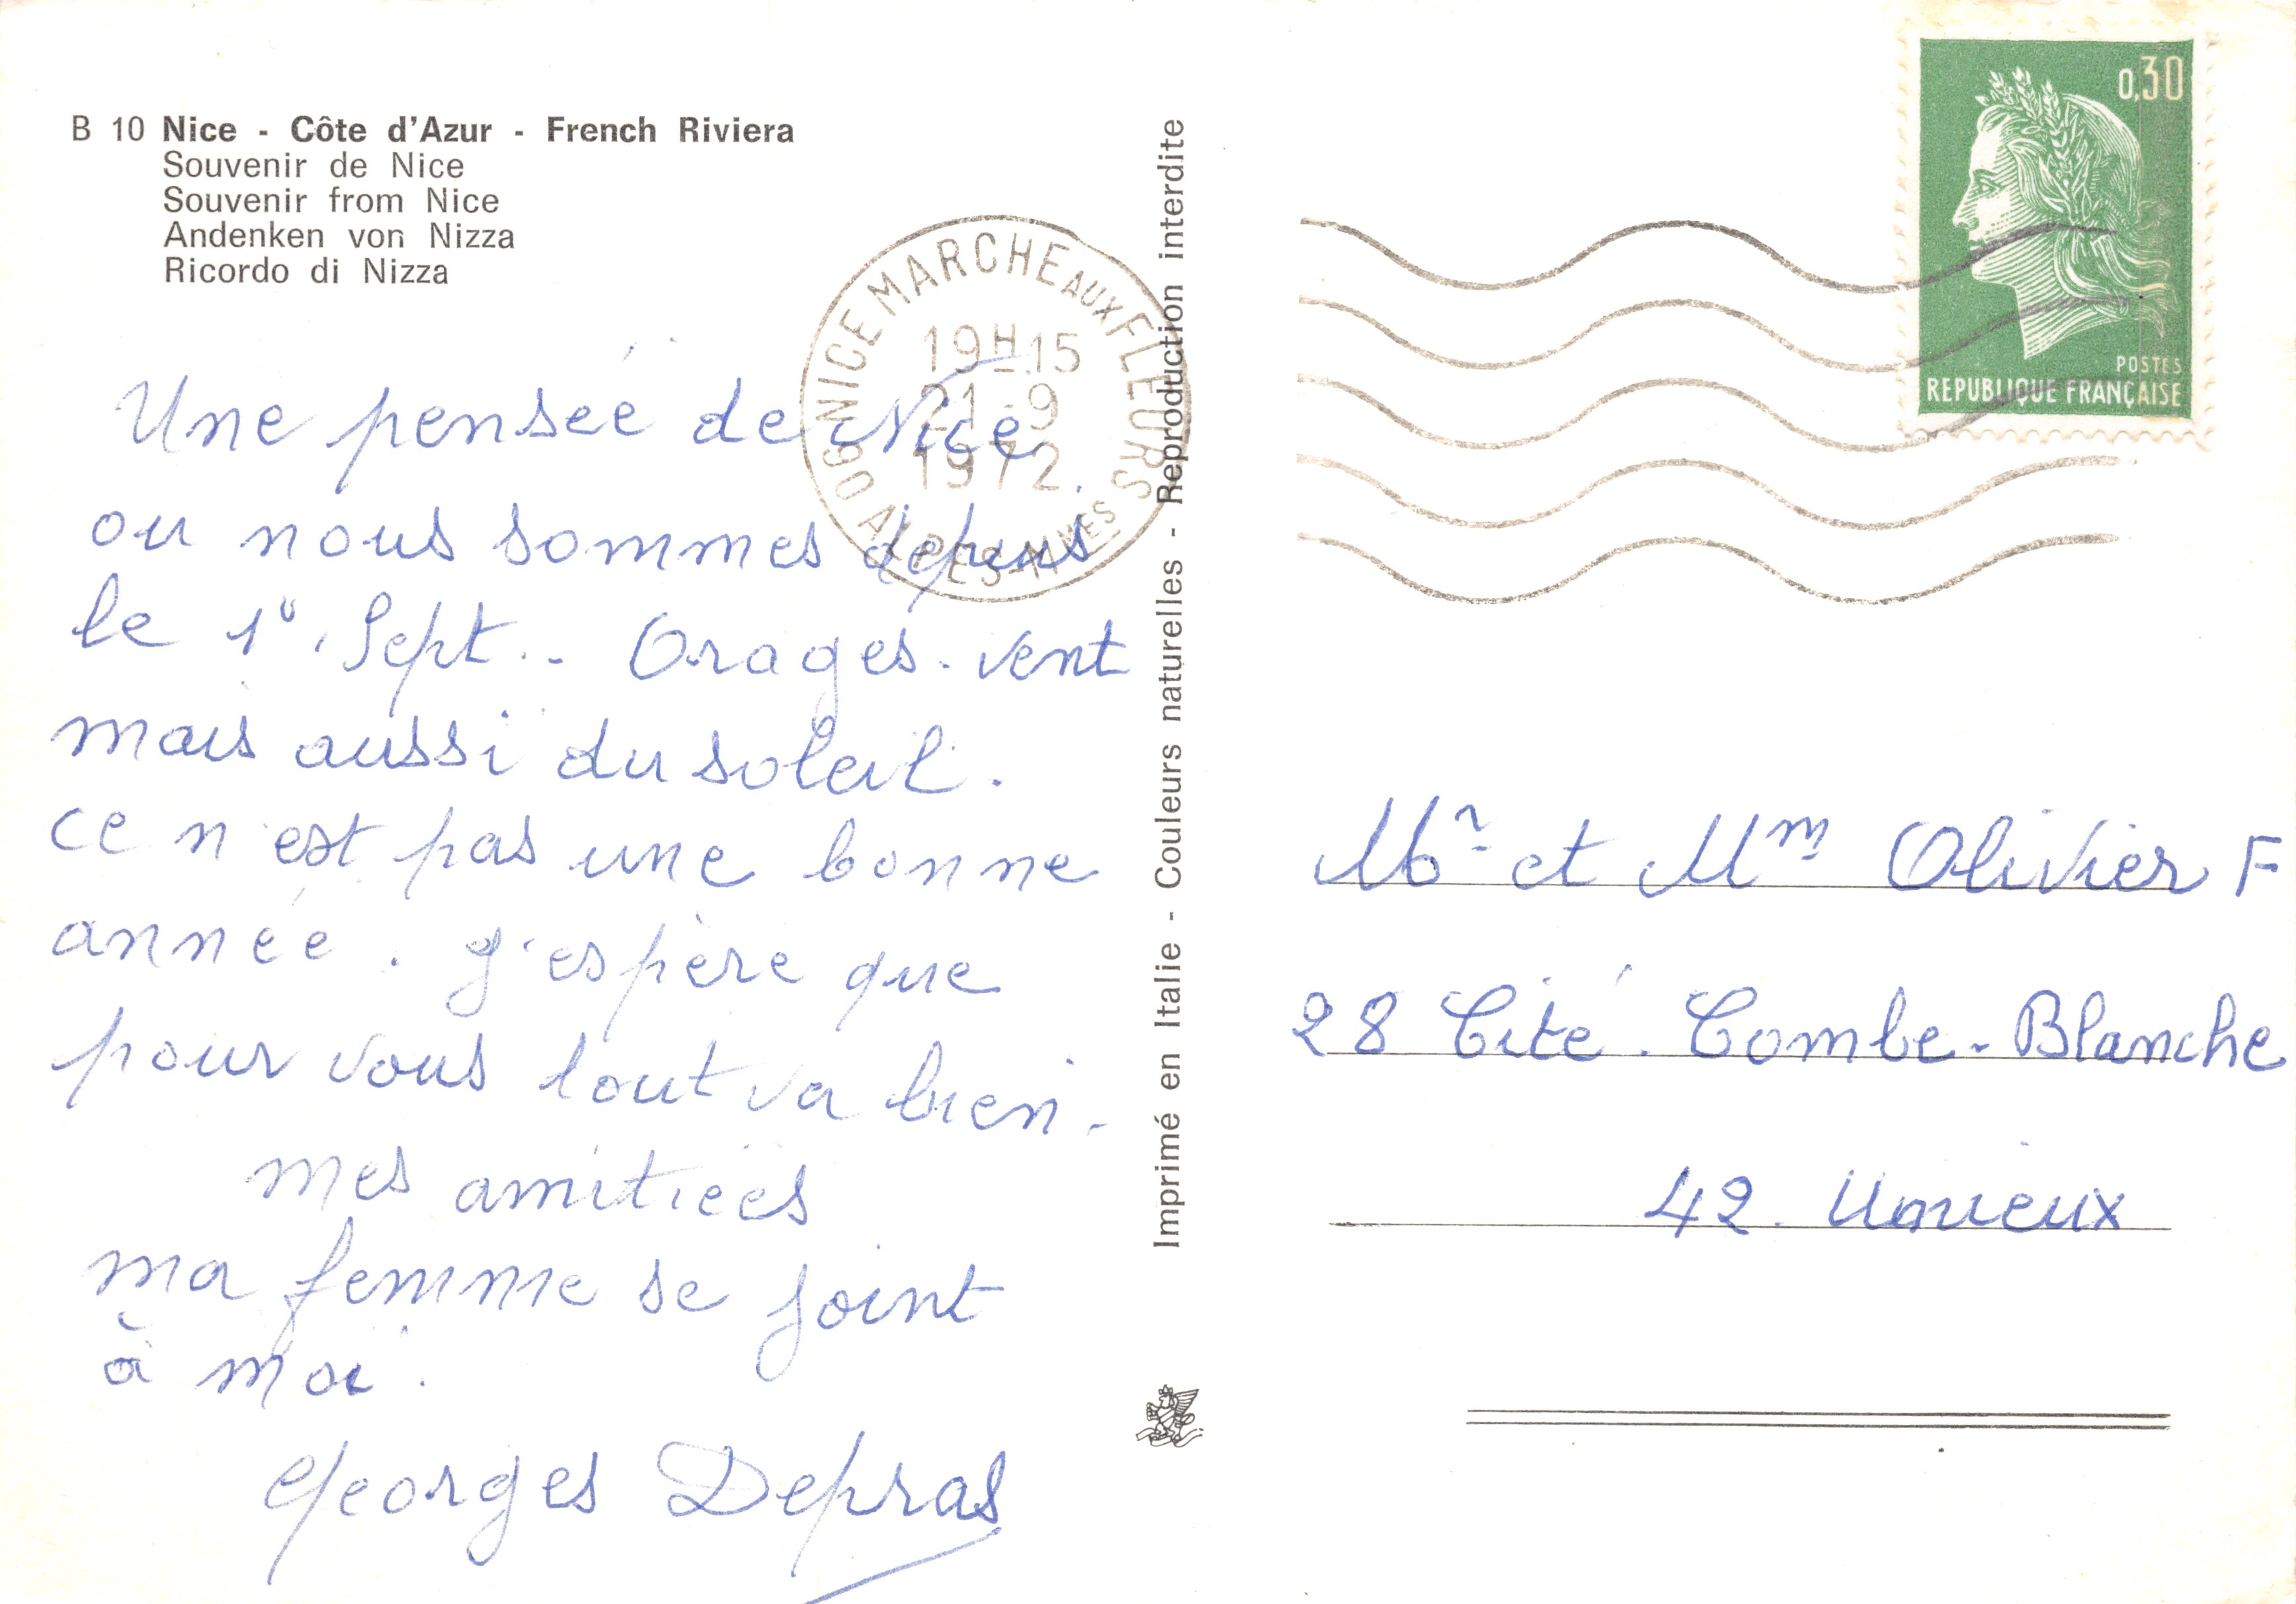 B 10 Nice - Côte d'Azur - French Riviera
Souvenir de Nice
Souvenir from Nice
Andenken von Nizza
Ricordo di Nizza
06 NICE MARCHE AUX FLEURS
19H15
21-9
1972
ALPES-MMES
Une pensée de Nice
ou nous sommes depuis
le 1º Sept.. Orages. vent
mais aussi du soleil.
ce n'est pas une bonne
année. J'espère que
pour vous tout va bien.
mes amitiées
ma femme se joint
à moi.
Georges Depras
Imprimé en Italie - Couleurs naturelles - Reproduction interdite
0,30
POSTES
REPUBLIQUE FRANÇAISE
Mr et Mm Olivier F
28 Cité. Combe-Blanche
42. Unieux